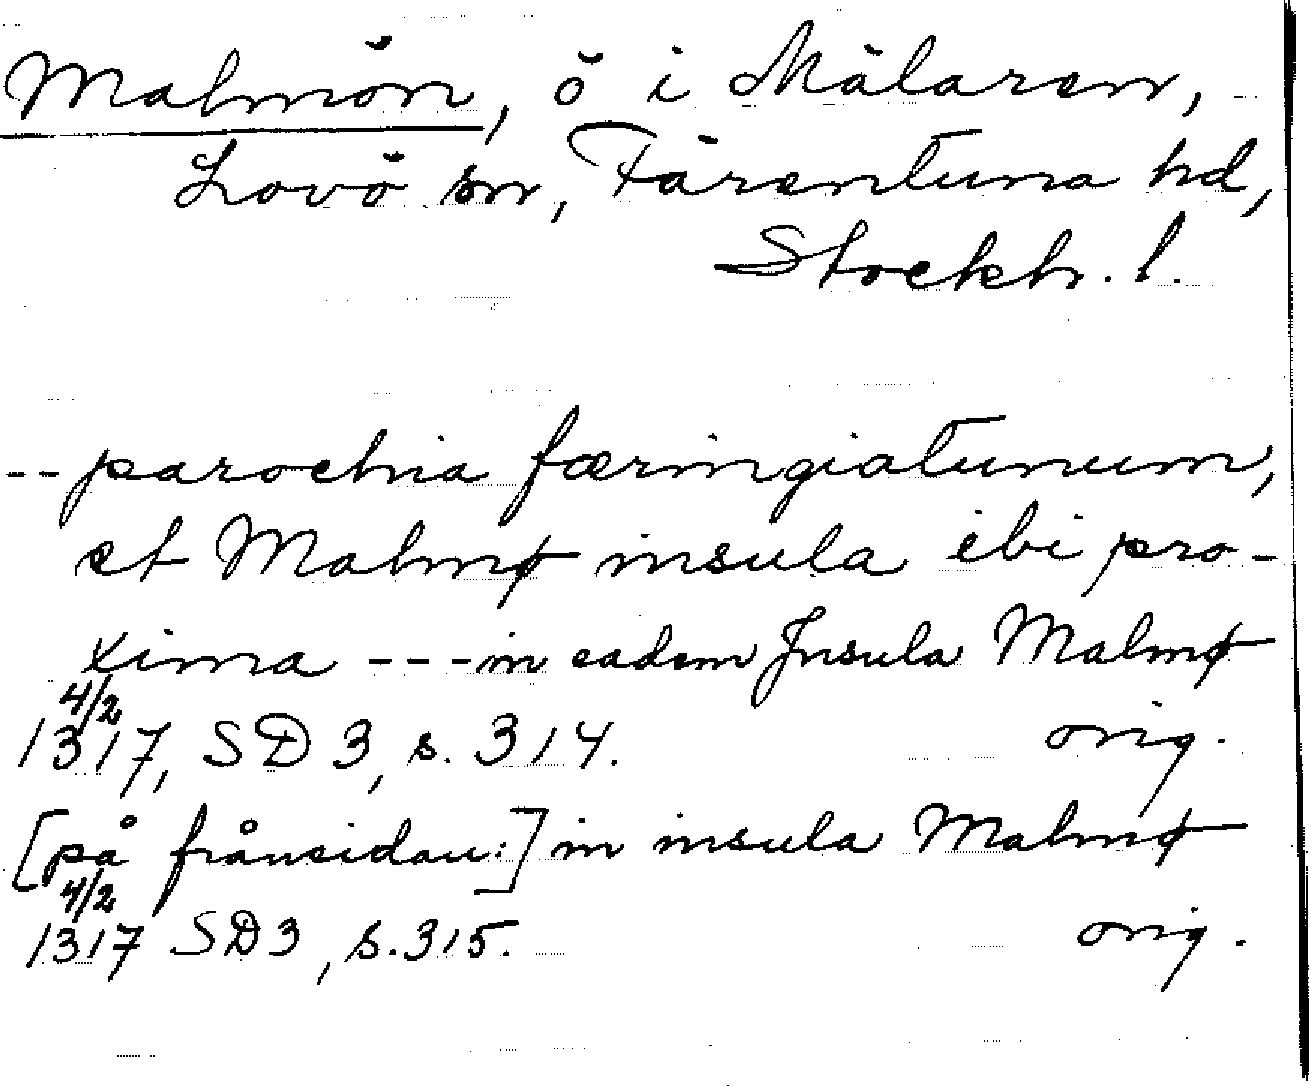 Malmön, ö i Mälaren,
Lovö sn, Färentuna hd,
Stockh. l.
-- parochia færingiatunum,
et Malmø insula ibi pro-
xima --- in eadem Jnsula Malmø
4/2
1317, SD 3, s. 314. orig.
[på frånsidan:] in insula Malmø
4/2
1317 SD 3, s. 315. orig.